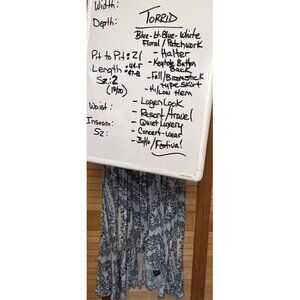 Width:
Depth:
Pit to Pit: 21
Length:
Sz: 2
(18/20)
Waist:
Inseam:
Sz:
TORRID
Blue-Lt. Blue-White
Floral/Patchwork
- Halter
- Keyhole Button
Back
- Full/Broomstick
type skirt
- Hi/Low Hem
- Layer Look
- Resort/travel
- Quiet Luxury
- Concert-wear
- Boho/Festival